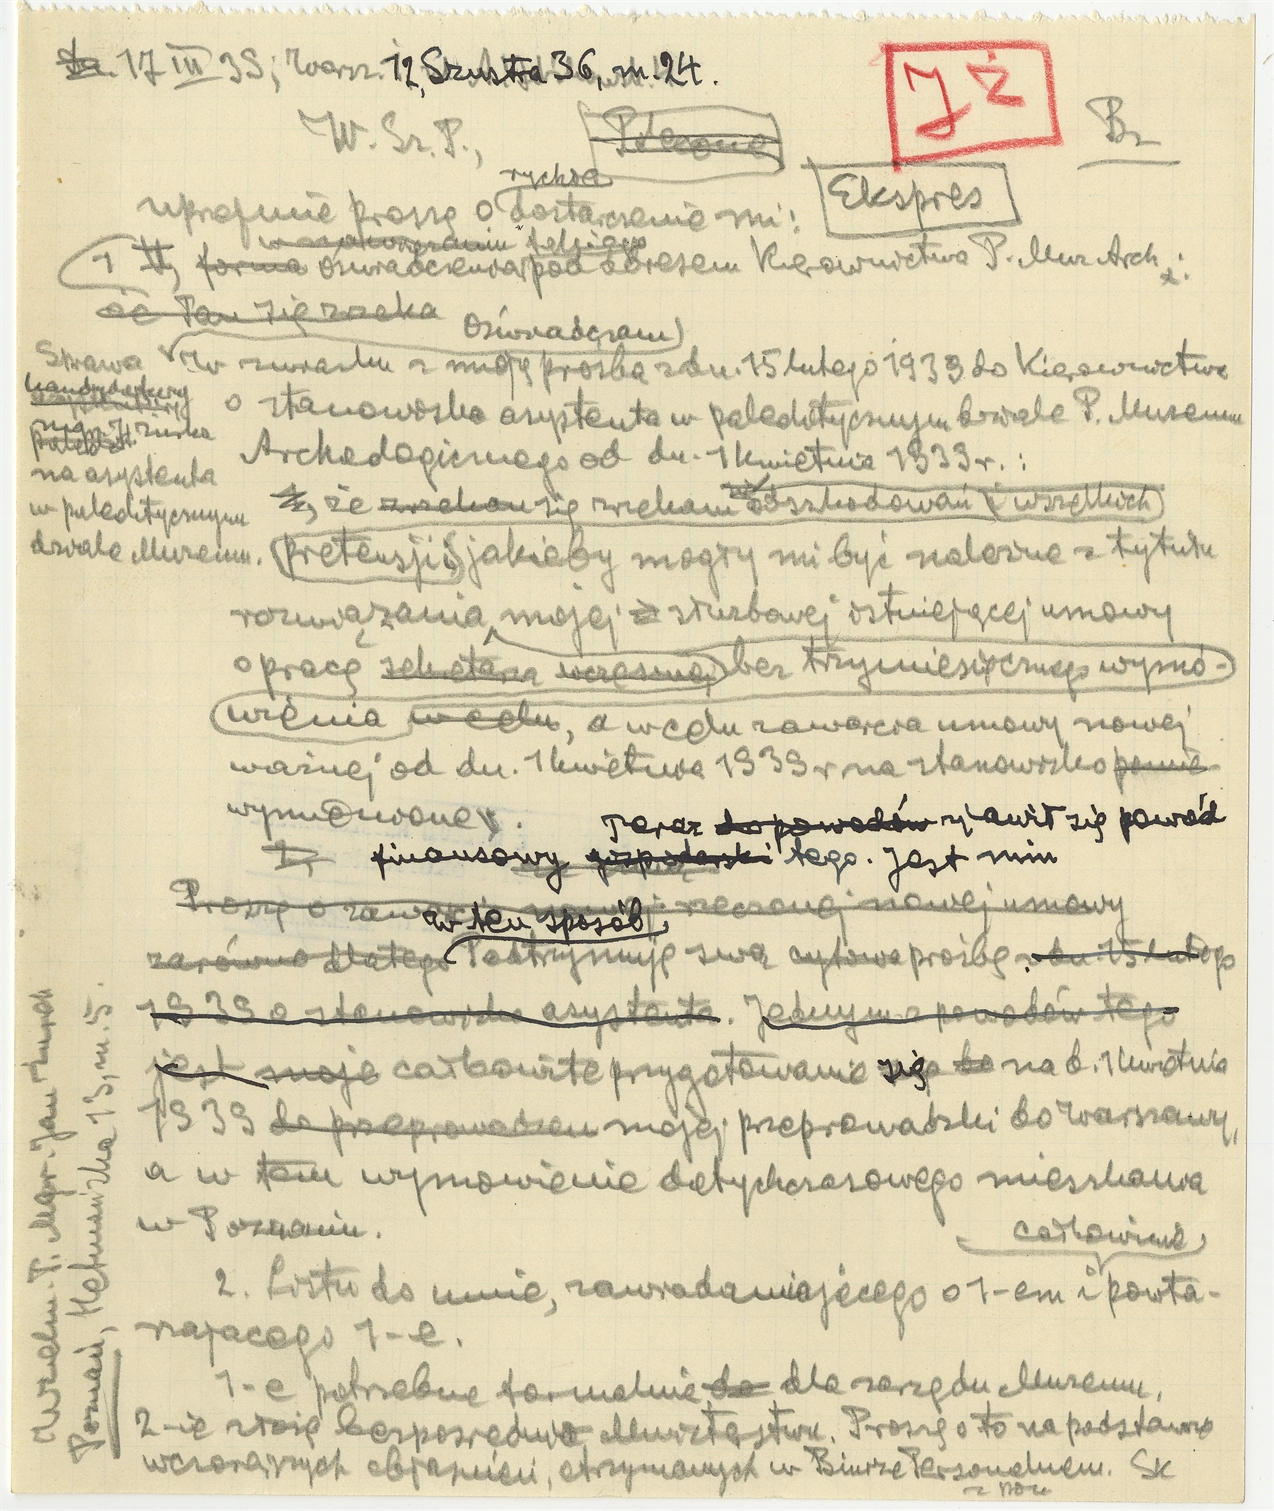 17 III 39; Warsz. 12, Szustra 36, m. 24.
JŻ
Br
W. Sz. P.,
Ekspres
rychłe
uprzejmie proszę o dostarczenie mi:
1 oświadczenia pod adresem Kierownictwa P. Muz Arch.:
że Pan się zrzeka
Oświadczam
Sprawa
mgr J. Żurka
na asystenta
w paleolitycznym
dziale Muzeum.
W związku z moją prośbą z dn. 15 lutego 1939 do Kierownictwa
o stanowisko asystenta w paleolitycznym dziale P. Muzeum
Archeologicznego od dn. 1 kwietnia 1939 r.:
że zrzekam się zrzekam odszkodowań i wszelkich
pretensji, jakieby mogły mi być należne z tytułu
rozwiązania mojej służbowej istniejącej umowy
o pracę bez trzymiesięcznego wymó-
wienia w celu, a w celu zawarcia umowy nowej
ważnej od dn. 1 kwietnia 1939 r. na stanowisko
wymienione.
Teraz do powodów zjawił się powód
finansowy gospodarski tego. Jest nim
Proszę o zawarcie rzeczonej nowej umowy
w ten sposób
zarówno dlatego Podtrzymuję swą cytowa prośbę z dn. 15 lutego
1939 o stanowisko asystenta. Jednym z powodów tego
jest moje całkowite przygotowanie się do na d. 1 kwietnia
1939 do przeprowadzen mojej przeprowadzki do Warszawy,
a w tem wymówienie dotychczasowego mieszkania
w Poznaniu.
całkowicie
2. Listu do mnie, zawiadamiającego o 1-em i powta-
rzającego 1-e.
1-e potrzebne formalnie do dla zarządu Muzeum,
2-ie złożę bezpośrednio Ministerstwu. Proszę o to na podstawie
wczorajszych objaśnień, otrzymanych w Biurze Personalnem. SK
W. Pan Mgr. Jan Żurek
Poznań, Hetmańska 13, m. 5.